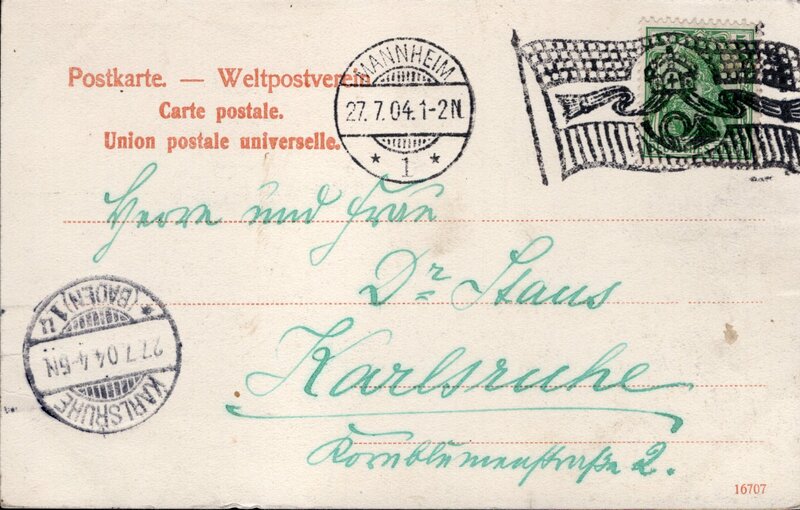 Postkarte. — Weltpostverein
Carte postale.
Union postale universelle.
MANNHEIM
27.7.04.1-2N.
* 1 *
Herrn und Frau
Dr Staus
Karlsruhe
Kornblumenstraße 2.
KARLSRUHE
27.7.04.4-5N.
* (BADEN) 1
16707